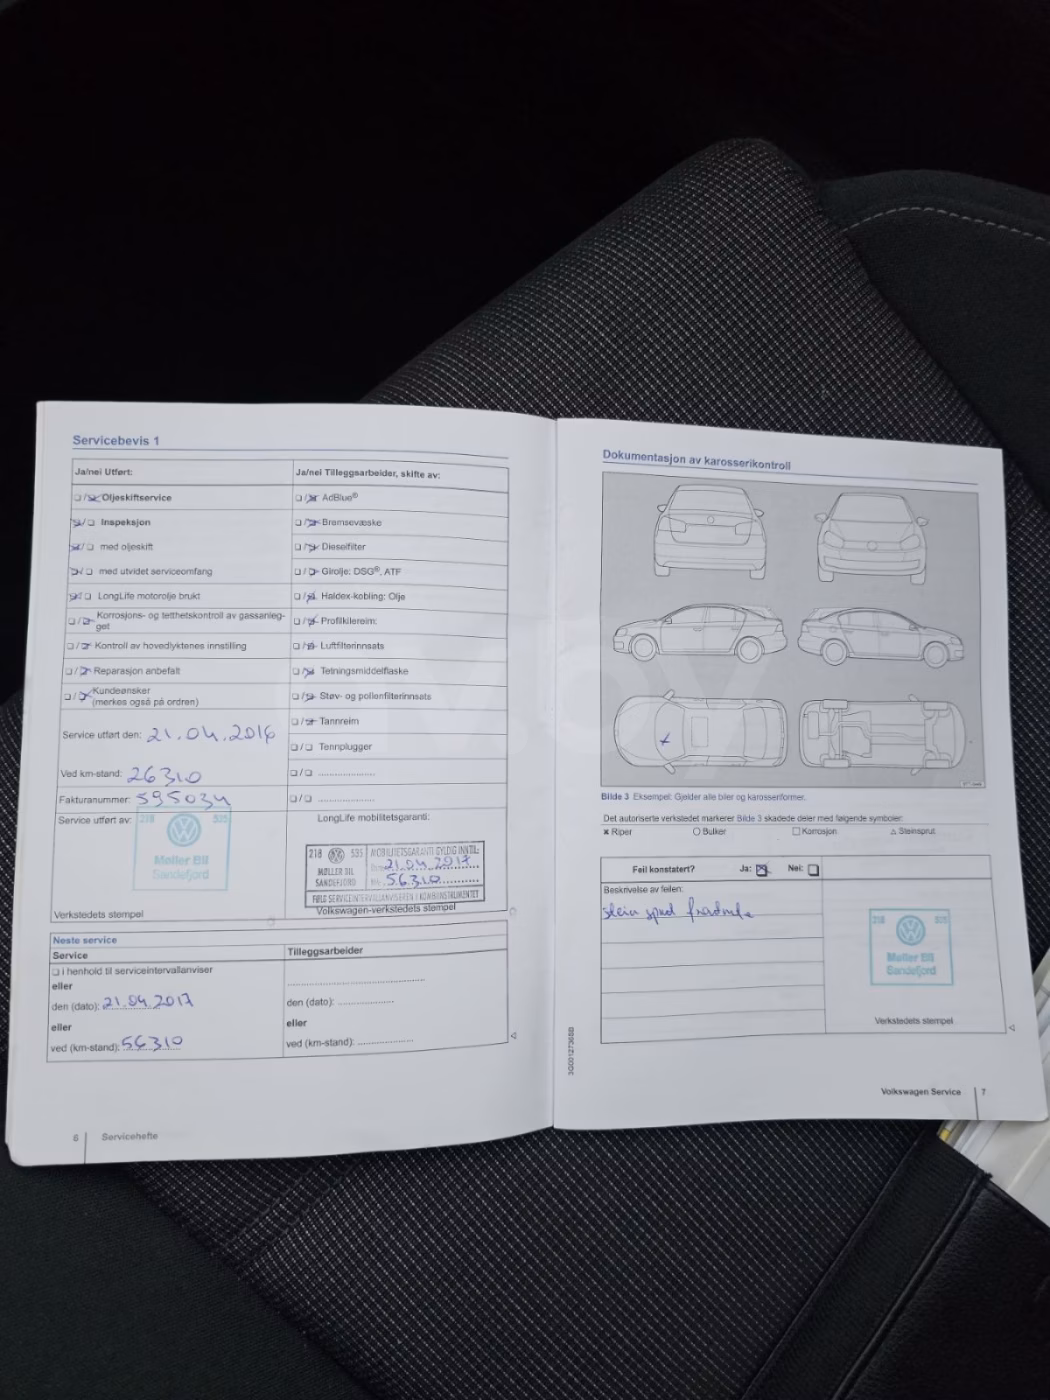 Servicebevis 1
Ja/nei Utført:
Oljeskiftservice
Inspeksjon
med oljeskift
med utvidet serviceomfang
LongLife motorolje brukt
Korrosjons- og tetthetskontroll av gassanleg-
get
Kontroll av hovedlyktenes innstilling
Reparasjon anbefalt
Kundeønsker
(merkes også på ordren)
Service utført den: 21.04.2016
Ved km-stand: 26310
Fakturanummer: 595034
Service utført av:
218 535
Møller Bil
Sandefjord
Verkstedets stempel
Ja/nei Tilleggsarbeider, skifte av:
AdBlue®
Bremsevæske
Dieselfilter
Girolje: DSG®, ATF
Haldex-kobling: Olje
Profilkilereim:
Luftfilterinnsats
Tetningsmiddelflaske
Støv- og pollenfilterinnsats
Tannreim
Tennplugger
LongLife mobilitetsgaranti:
218 535 MOBILITETSGARANTI GYLDIG INNTIL:
21.04.2017
MØLLER BIL
SANDEFJORD 56310
FØLG SERVICEINTERVALLANVISEREN I KOMBIINSTRUMENTET
Volkswagen-verkstedets stempel
Neste service
Service
i henhold til serviceintervallanviser
eller
den (dato): 21.04.2017
eller
ved (km-stand): 56310
Tilleggsarbeider
den (dato):
eller
ved (km-stand):
6 Servicehefte
Dokumentasjon av karosserikontroll
Bilde 3 Eksempel: Gjelder alle biler og karosseriformer.
Det autoriserte verkstedet markerer Bilde 3 skadede deler med følgende symboler:
Riper
Bulker
Korrosjon
Steinsprut
Feil konstatert? Ja: Nei:
Beskrivelse av feilen:
stein
535
Møller Bil
Sandefjord
Verkstedets stempel
3G0012738BB
Volkswagen Service 7